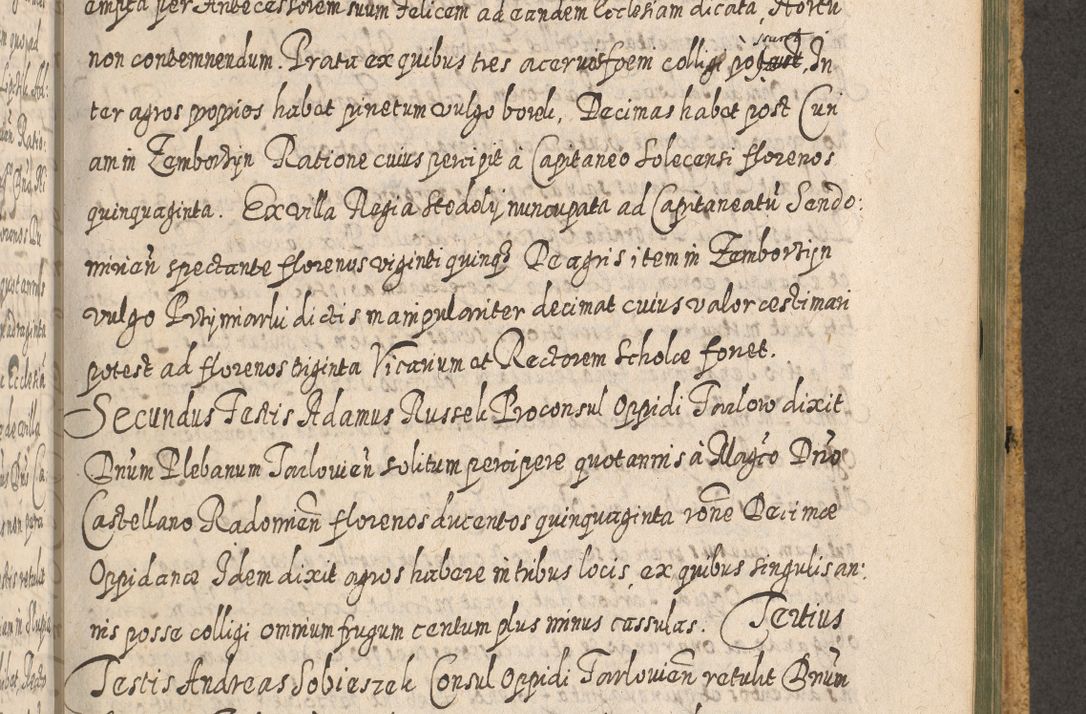 empta per Antecessorem suum felicem ad eandem Ecclesiam dicata, Hortū
non contemnendum. Prata ex quibus tres acervos foem collige possunt, In
ter agros proprios habet pinetum vulgo boreli, Decimas habet post Cun
am in Zemborzyn Ratione cuius percipit à Capitaneo Solecensi florenos
quinquaginta. Ex villa Regia Stodoly nuncupata ad Capitaneatū Sando:
mirien̄ spectante florenos viginti quinq3 De agris item in Zemborzyn
vulgo dictis manipulariter decimat cuius valor æstimari
potest ad florenos triginta Vicarium et Rectorem Scholæ fovet.
Secundus Testis Adamus Russek Proconsul Oppidi Tarlow dixit
Dn̄um Plebanum Tarlovien̄ solitum percipere quotannis à Magc̄o Dn̄o
Castellano Radomien̄ florenos ducentos quinquaginta rōne Decimæ
Oppidanæ Idem dixit agros habere in tribus locis, ex quibus singulis an:
nis posse colligi omnium frugum centum plus minus cassulas. Tertius
Testis Andreas Sobieszek Consul Oppidi Tarlovien̄ retulit Dn̄um